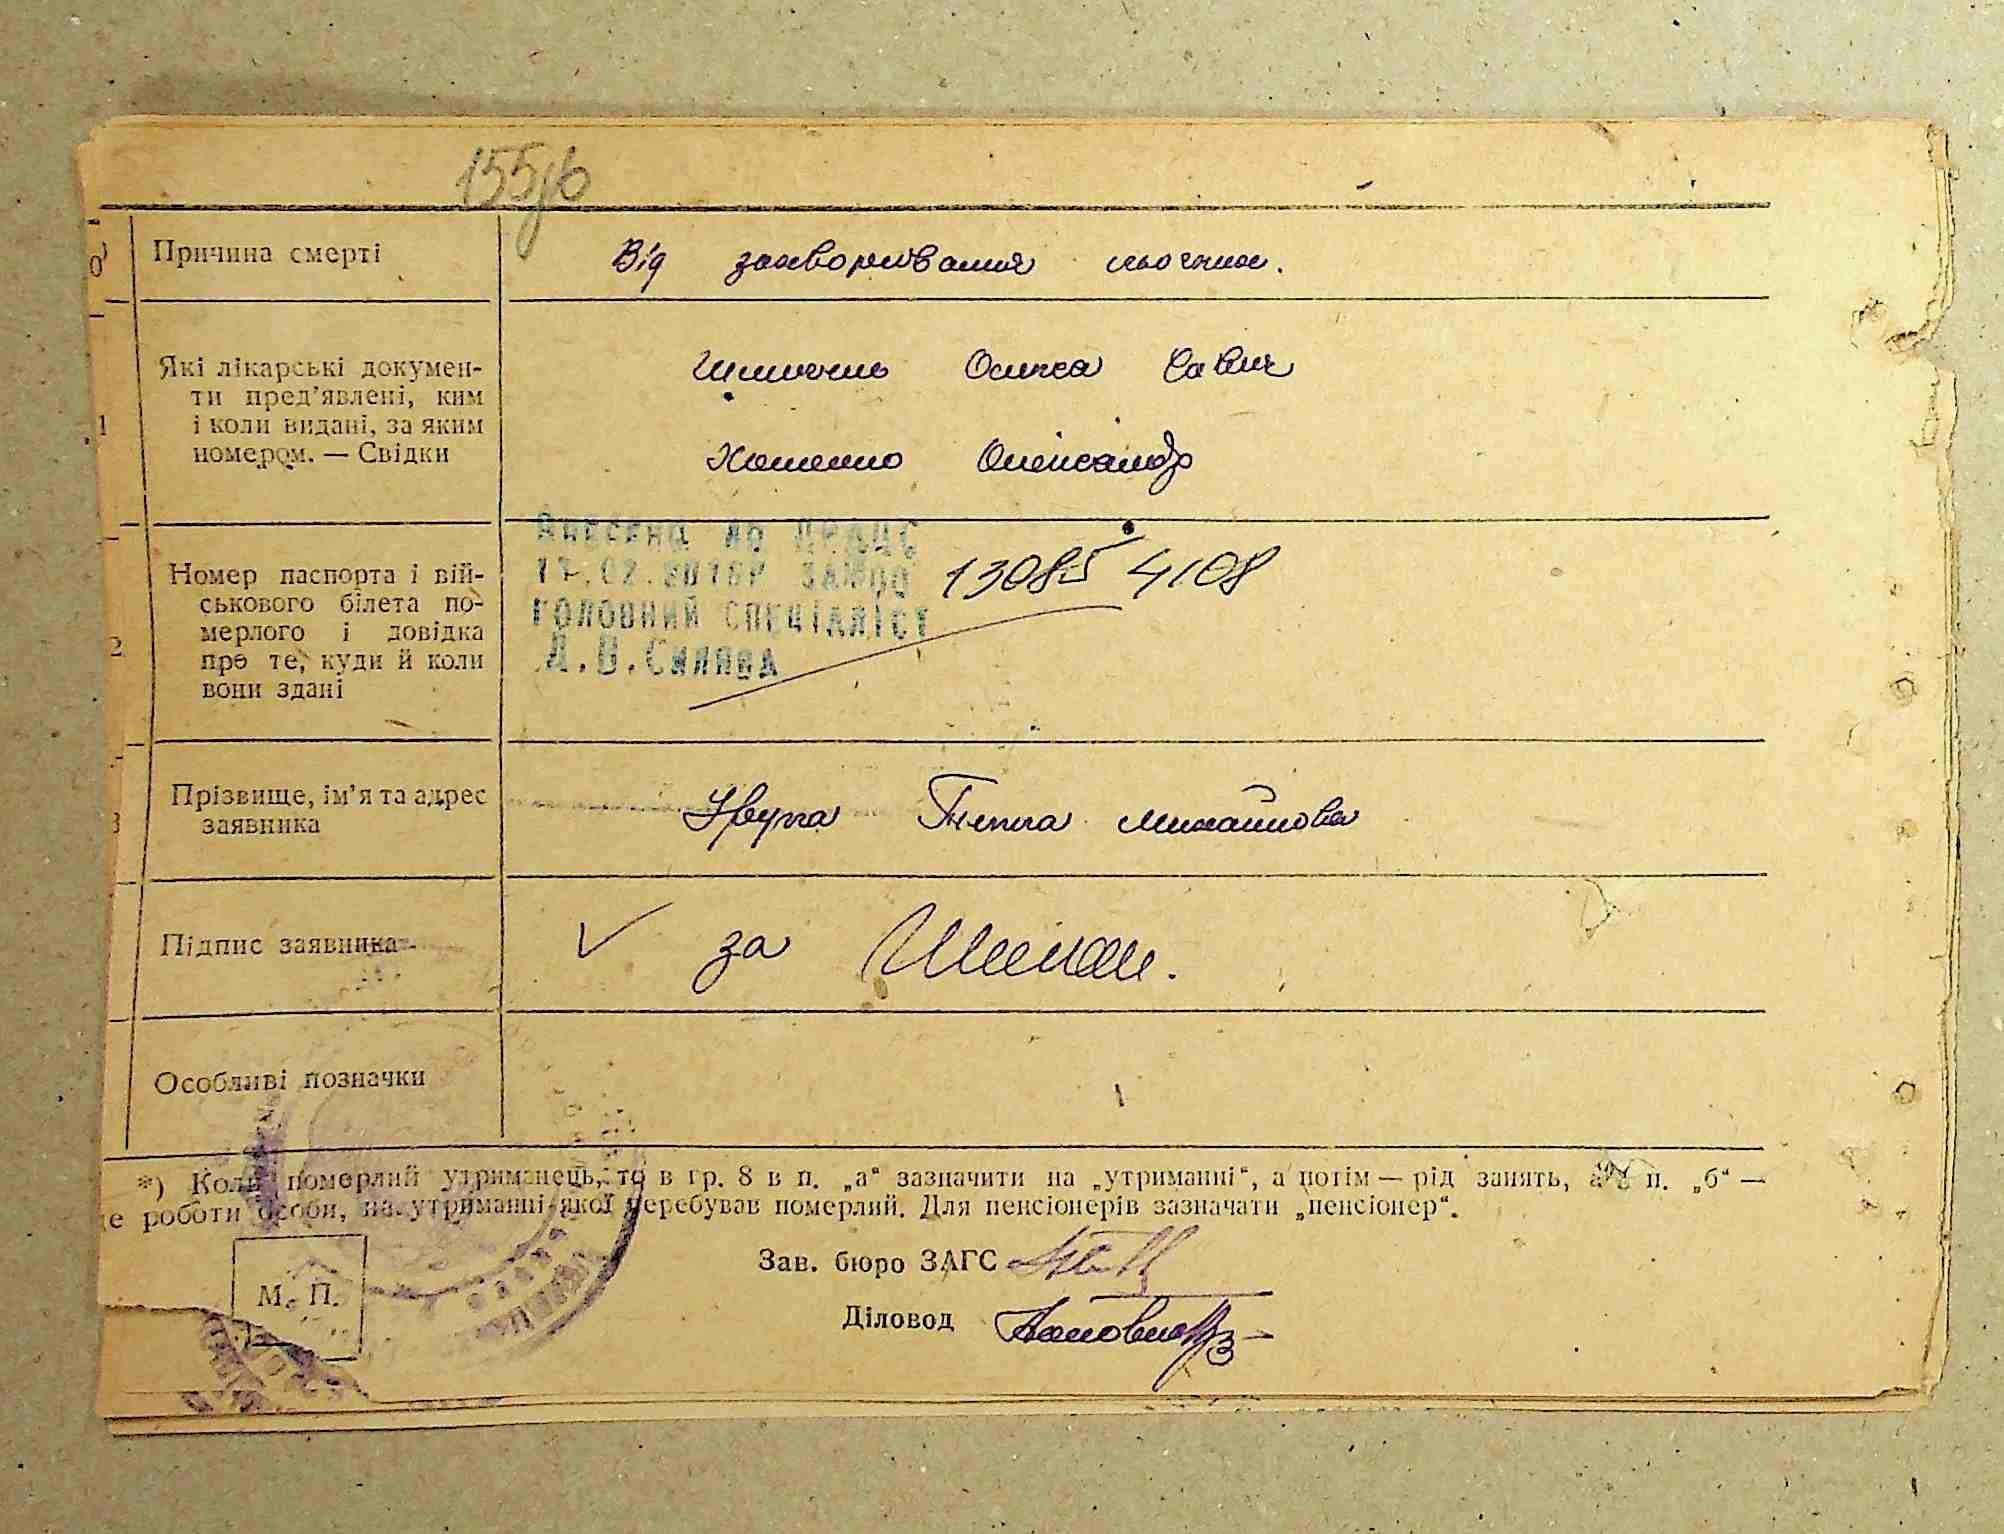 Причина смерті
Від захворювання
Які лікарські докумен-
ти пред'явлені, ким
і коли видані, за яким
номером. — Свідки
Савич
Олександр
Номер паспорта і вій-
ськового білета по-
мерлого і довідка
про те, куди й коли
вони здані
Внесено до ДРАЦС
ГОЛОВНИЙ СПЕЦІАЛІСТ
130854108
Прізвище, ім'я та адрес
заявника
Михайловна
Підпис заявника
за
Особливі позначки
*) Коли померлий утриманець, то в гр. 8 в п. „а“ зазначити на „утриманні“, а потім — рід занять, а в п. „б“ —
це роботи особи, на утриманні якої перебував померлий. Для пенсіонерів зазначати „пенсіонер“.
Зав. бюро ЗАГС
М. П.
Діловод